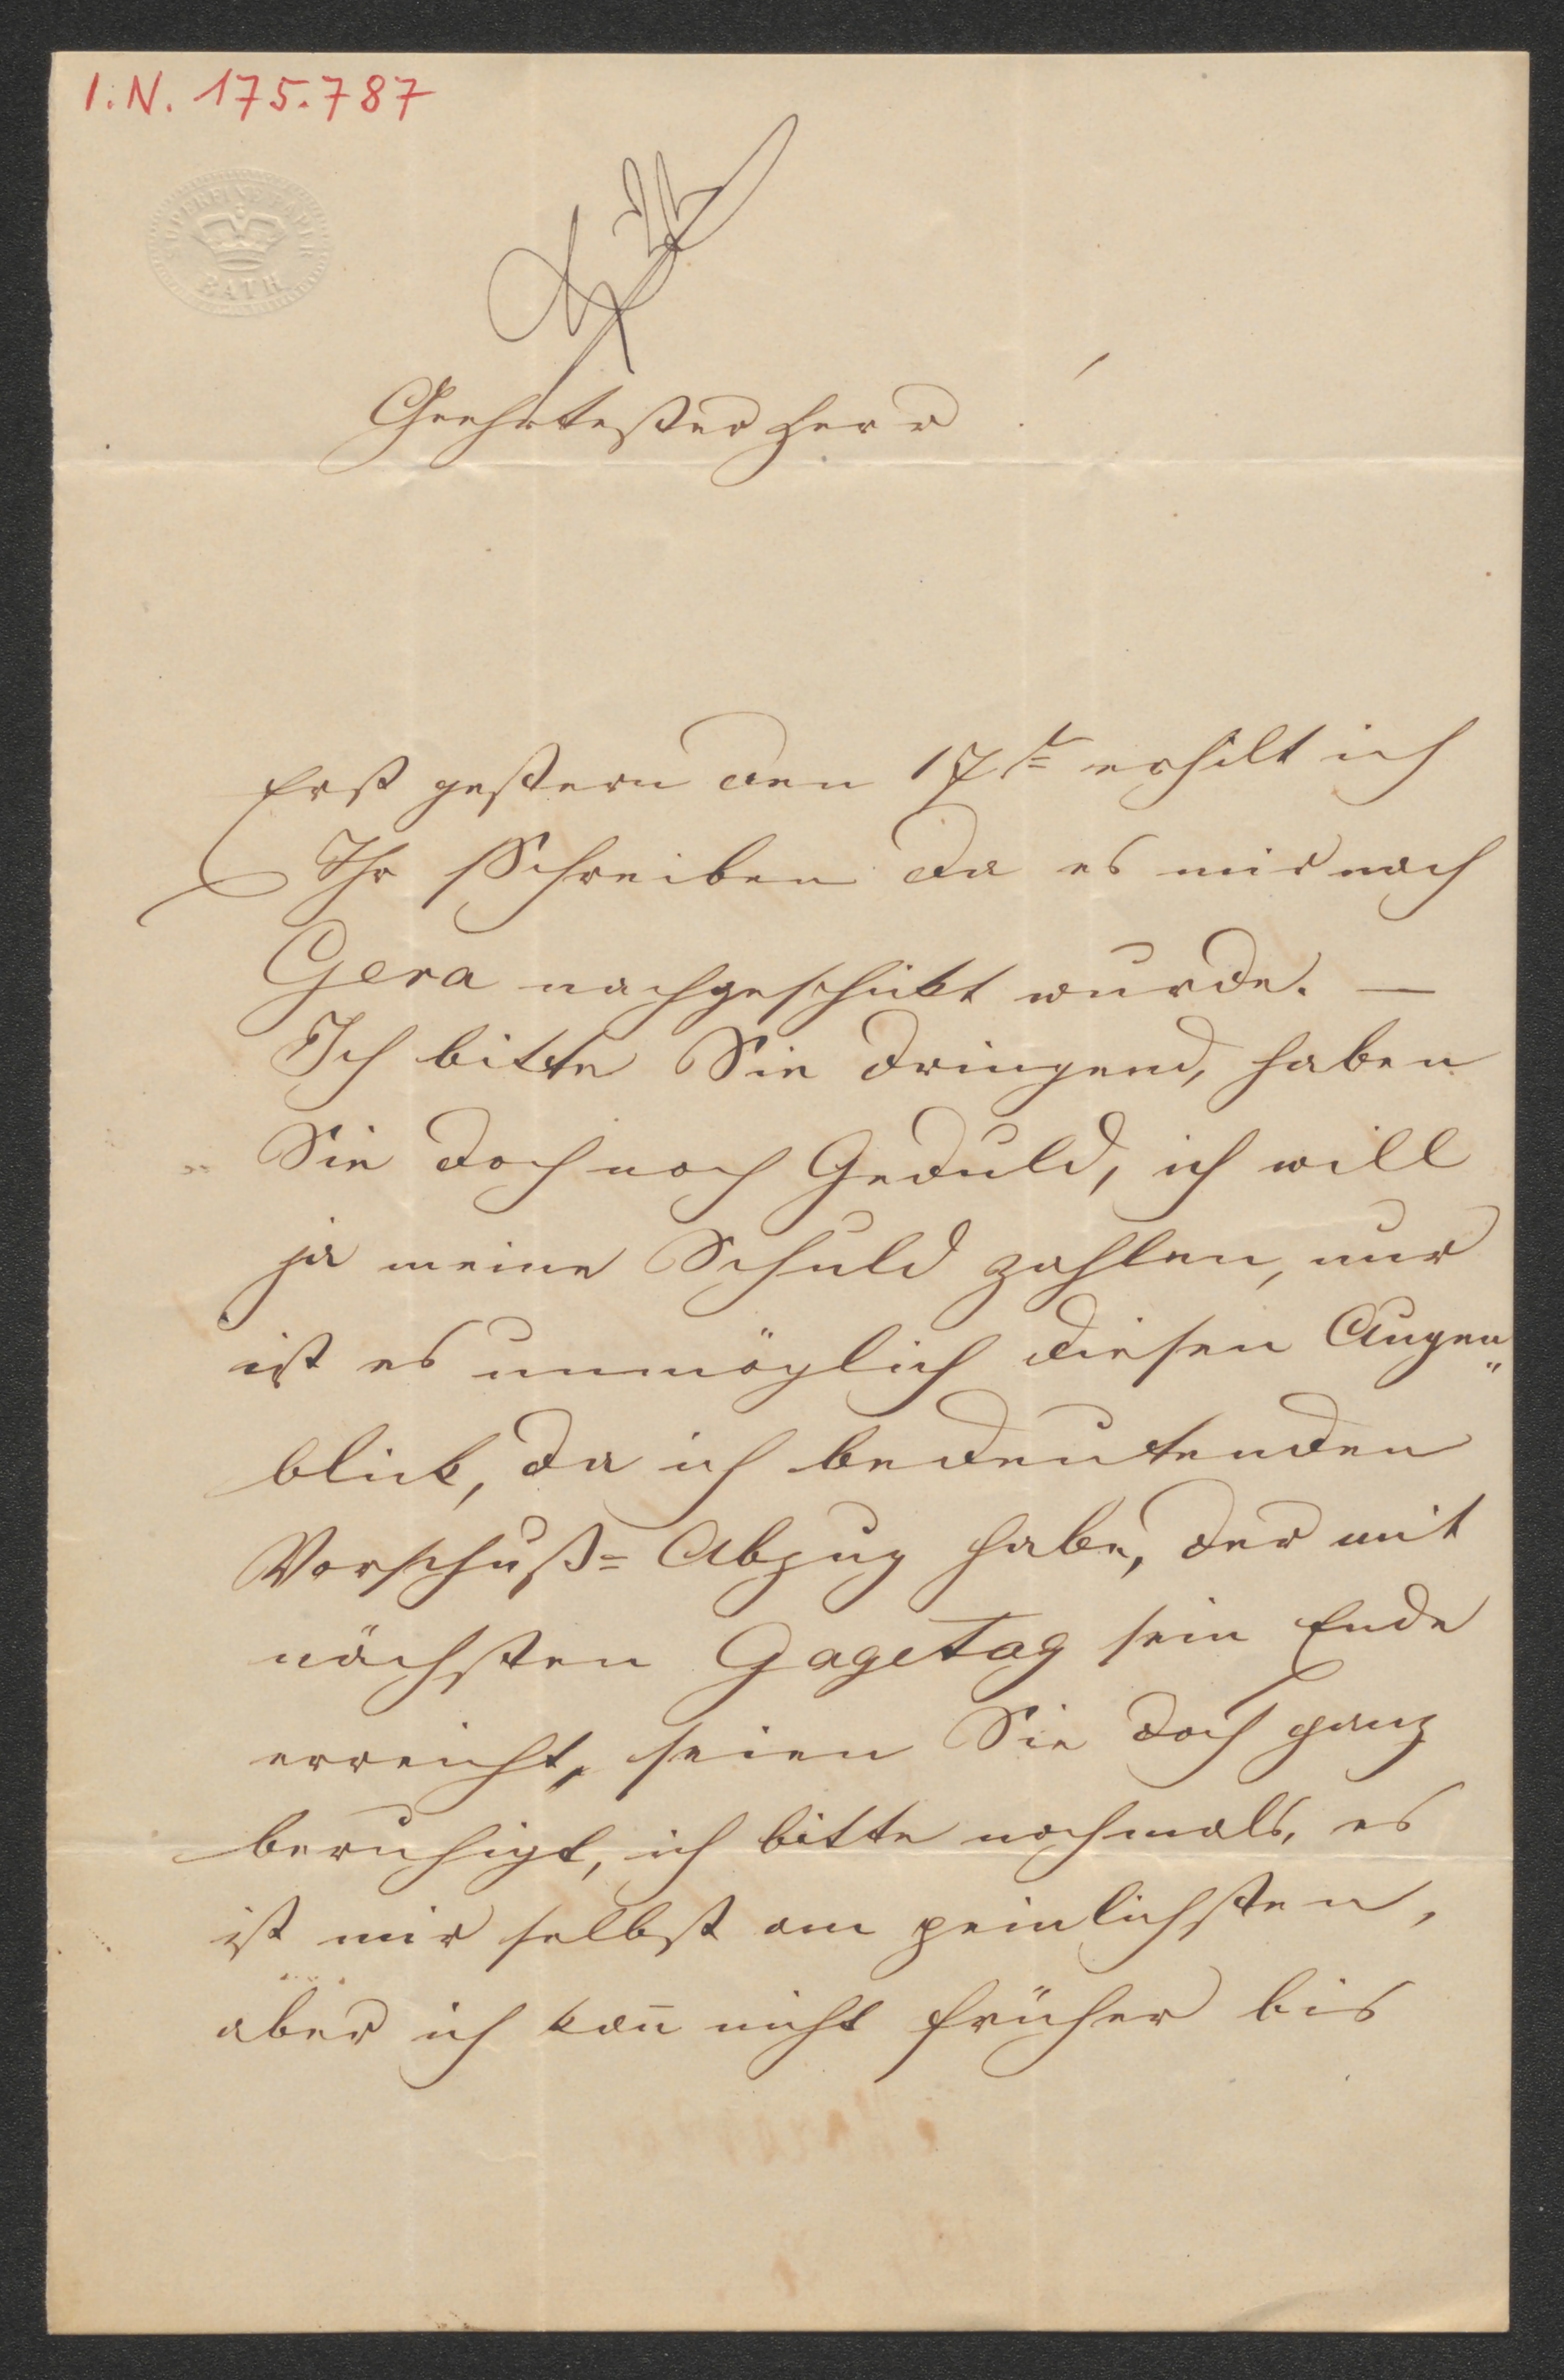 I. N. 175.787
SUPERFINE PAPER
BATH
Geehrtester Herr !
Erst gestern den 17t erhilt ich
Ihr Schreiben da es mir nach
Gera nachgeschickt wurde. —
Ich bitte Sie dringend, haben
Sie doch noch Geduld, ich will
ja meine Schuld zahlen, nur
ist es unmöglich diesen Augen„
blick, da ich bedeutenden
Vorschuß= Abzug habe, der mit
nächsten Gagetag sein Ende
erreicht, seien Sie doch ganz
beruhigt, ich bitte nochmals, es
ist mir selbst am peinlichsten,
aber ich kan̅ nicht früher bis